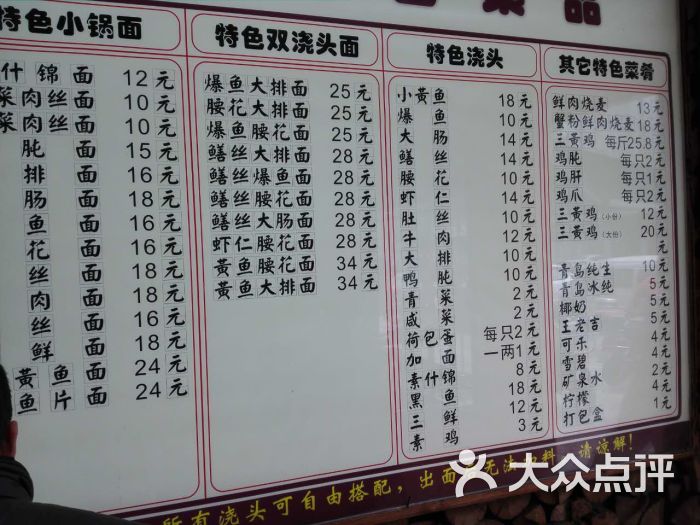 菜品
特色小锅面
什锦面 12元
菜肉丝面 10元
菜肉丝面 10元
肫面 15元
排面 10元
肠面 18元
鱼面 16元
花面 16元
丝面 18元
肉面 18元
丝面 16元
鲜面 18元
黄鱼面 24元
鱼片面 24元
特色双浇头面
爆鱼大排面 25元
腰花大排面 25元
爆鱼腰花面 25元
鳝丝大排面 28元
鳝丝爆鱼面 28元
鳝丝腰花面 28元
鳝丝大肠面 28元
虾仁腰花面 28元
黄鱼腰花面 34元
黄鱼大排面 34元
特色浇头
小黄鱼 18元
爆鱼 10元
大肠 14元
鳝丝 14元
腰花 10元
虾仁 14元
肚丝 10元
牛肉 12元
大排 10元
鸭肫 10元
青菜 2元
咸菜 2元
荷包蛋 每只2元
加面 一两1元
素什锦 8元
黑鱼 18元
三鲜 12元
素鸡 3元
其它特色菜肴
鲜肉烧麦 13元
蟹粉鲜肉烧麦 18元
三黄鸡 每斤25.8元
鸡肫 每只2元
鸡肝 每只1元
鸡爪 每只2元
三黄鸡(小份) 12元
三黄鸡(大份) 20元
元
青岛纯生 10元
青岛冰纯 5元
椰奶 5元
王老吉 5元
可乐 4元
雪碧 4元
矿泉水 2元
柠檬 4元
打包盒 1元
所有浇头可自由搭配，出面 无法 料，请谅解！
大众点评